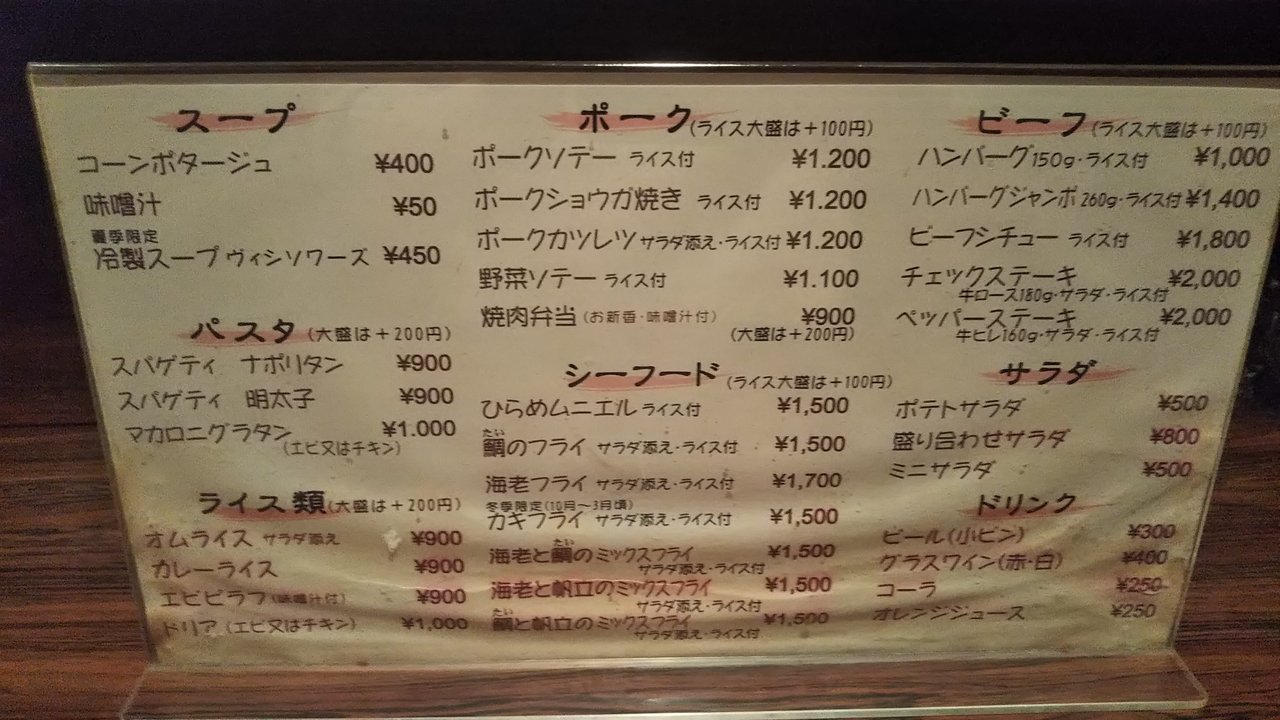 スープ
コーンポタージュ ¥400
味噌汁 ¥50
夏季限定
冷製スープ ヴィシソワーズ ¥450
パスタ (大盛は+200円)
スパゲティ ナポリタン ¥900
スパゲティ 明太子 ¥900
マカロニグラタン ¥1.000
(エビ又はチキン)
ライス類 (大盛は+200円)
オムライス サラダ添え ¥900
カレーライス ¥900
エビピラフ (味噌汁付) ¥900
ドリア (エビ又はチキン) ¥1,000
ポーク (ライス大盛は+100円)
ポークソテー ライス付 ¥1.200
ポークショウガ焼き ライス付 ¥1.200
ポークカツレツ サラダ添え・ライス付 ¥1.200
野菜ソテー ライス付 ¥1.100
焼肉弁当 (お新香・味噌汁付) ¥900
(大盛は+200円)
シーフード (ライス大盛は+100円)
ひらめムニエル ライス付 ¥1,500
たい
鯛のフライ サラダ添え・ライス付 ¥1,500
海老フライ サラダ添え・ライス付 ¥1,700
冬季限定(10月〜3月頃)
カキフライ サラダ添え・ライス付 ¥1,500
たい
海老と鯛のミックスフライ ¥1,500
サラダ添え・ライス付
海老と帆立のミックスフライ ¥1,500
サラダ添え・ライス付
たい
鯛と帆立のミックスフライ ¥1,500
サラダ添え・ライス付
ビーフ (ライス大盛は+100円)
ハンバーグ 150g・ライス付 ¥1,000
ハンバーグジャンボ 260g・ライス付 ¥1,400
ビーフシチュー ライス付 ¥1,800
チェックステーキ ¥2,000
牛ロース180g・サラダ・ライス付
ペッパーステーキ ¥2,000
牛ヒレ160g・サラダ・ライス付
サラダ
ポテトサラダ ¥500
盛り合わせサラダ ¥800
ミニサラダ ¥500
ドリンク
ビール(小ビン) ¥300
グラスワイン(赤・白) ¥400
コーラ ¥250
オレンジジュース ¥250